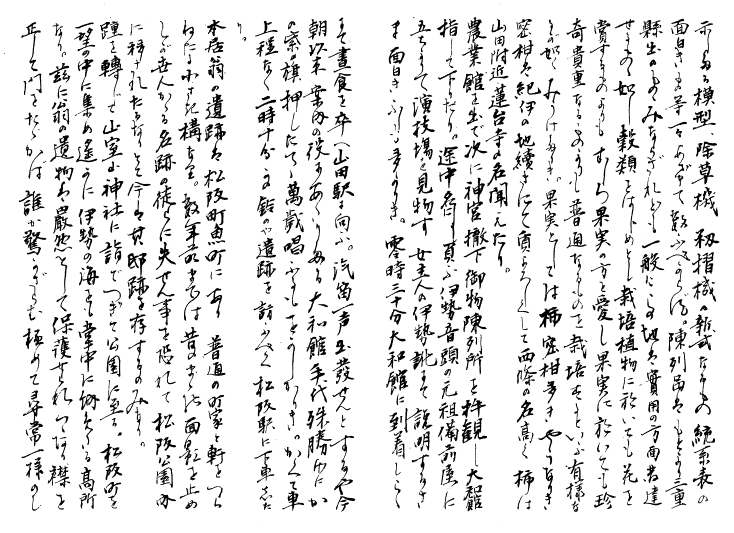 示したる模型、除草機、籾摺機の新式なるもの統系表の
面白きも等一々あげて数ふべからず陳列品はもとより三重
縣出のものみなざれども一般にこの地は實用の方面発達
せるものゝ如し穀類をはじめとし栽培植物に於いても花を
賞するものよりもむしろ果実の方を愛し果実に於いても珍
奇貴重なるものよりも普通なるものを栽培すといふ有様な
るが如くみうけたりき。果実としては柿蜜柑多きやうなりき
蜜柑は紀伊の地続きにて質よろしくして西隣の名高く柿は
山田附近蓮台寺の名聞えたり。
農業館を出で次に神宮撤下御物陳列所を拝観し大和館
指して下りたり。途中名に負ふ伊勢音頭の元祖備前屋に
立ちよりて演技場を見物す女主人の伊勢訛もて説明するさ
ま面白きふしも多かりき。零時三十分大和館に到着しこゝ
にて晝食を卒へ山田駅に向ふ。汽笛一声出發せんとするや今
朝以来案内の役にあたりたる大和館手代殊勝にか
の寮の旗押したてゝ萬歳唱ふるもをかしかりき。かくて車
上程なく二時十分より鈴の屋遺跡を訪ふべく松阪駅に下車した
り。
本居翁の遺跡は松阪町魚町にあり普通の町家と軒をつら
ねたる小さき構なり数年前までは昔のまゝの面影を止め
しが世人かゝる名跡の徒らに失せん事を恐れて松阪公園内
に移されたるなりとて今は其邸跡を存するのみなり。
踵を轉じて山室山神社に詣でつぎて公園に至る。松阪町を
一望の中に集め遙かに伊勢の海をも掌中に眺むる高所
なり。茲に翁の遺物は嚴然として保護せられつゝあり襟を
正して門をたゝかば誰か驚かざらむ極めて尋常一様のし